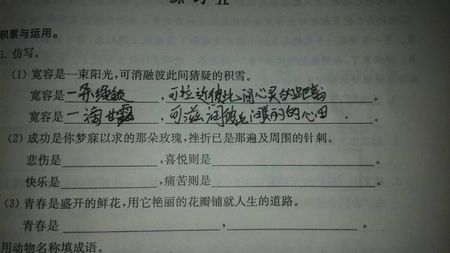 练习五
积累与运用。
1. 仿写。
(1) 宽容是一束阳光,可消融彼此间猜疑的积雪。
宽容是一条缎,可拉近彼此间心灵的距离
宽容是一滴甘露,可滋润彼此间的心田。
(2) 成功是你梦寐以求的那朵玫瑰,挫折已是那遍及周围的针刺。
悲伤是,喜悦则是。
快乐是,痛苦则是。
(3) 青春是盛开的鲜花,用它艳丽的花瓣铺就人生的道路。
青春是,。
用动物名称填成语。